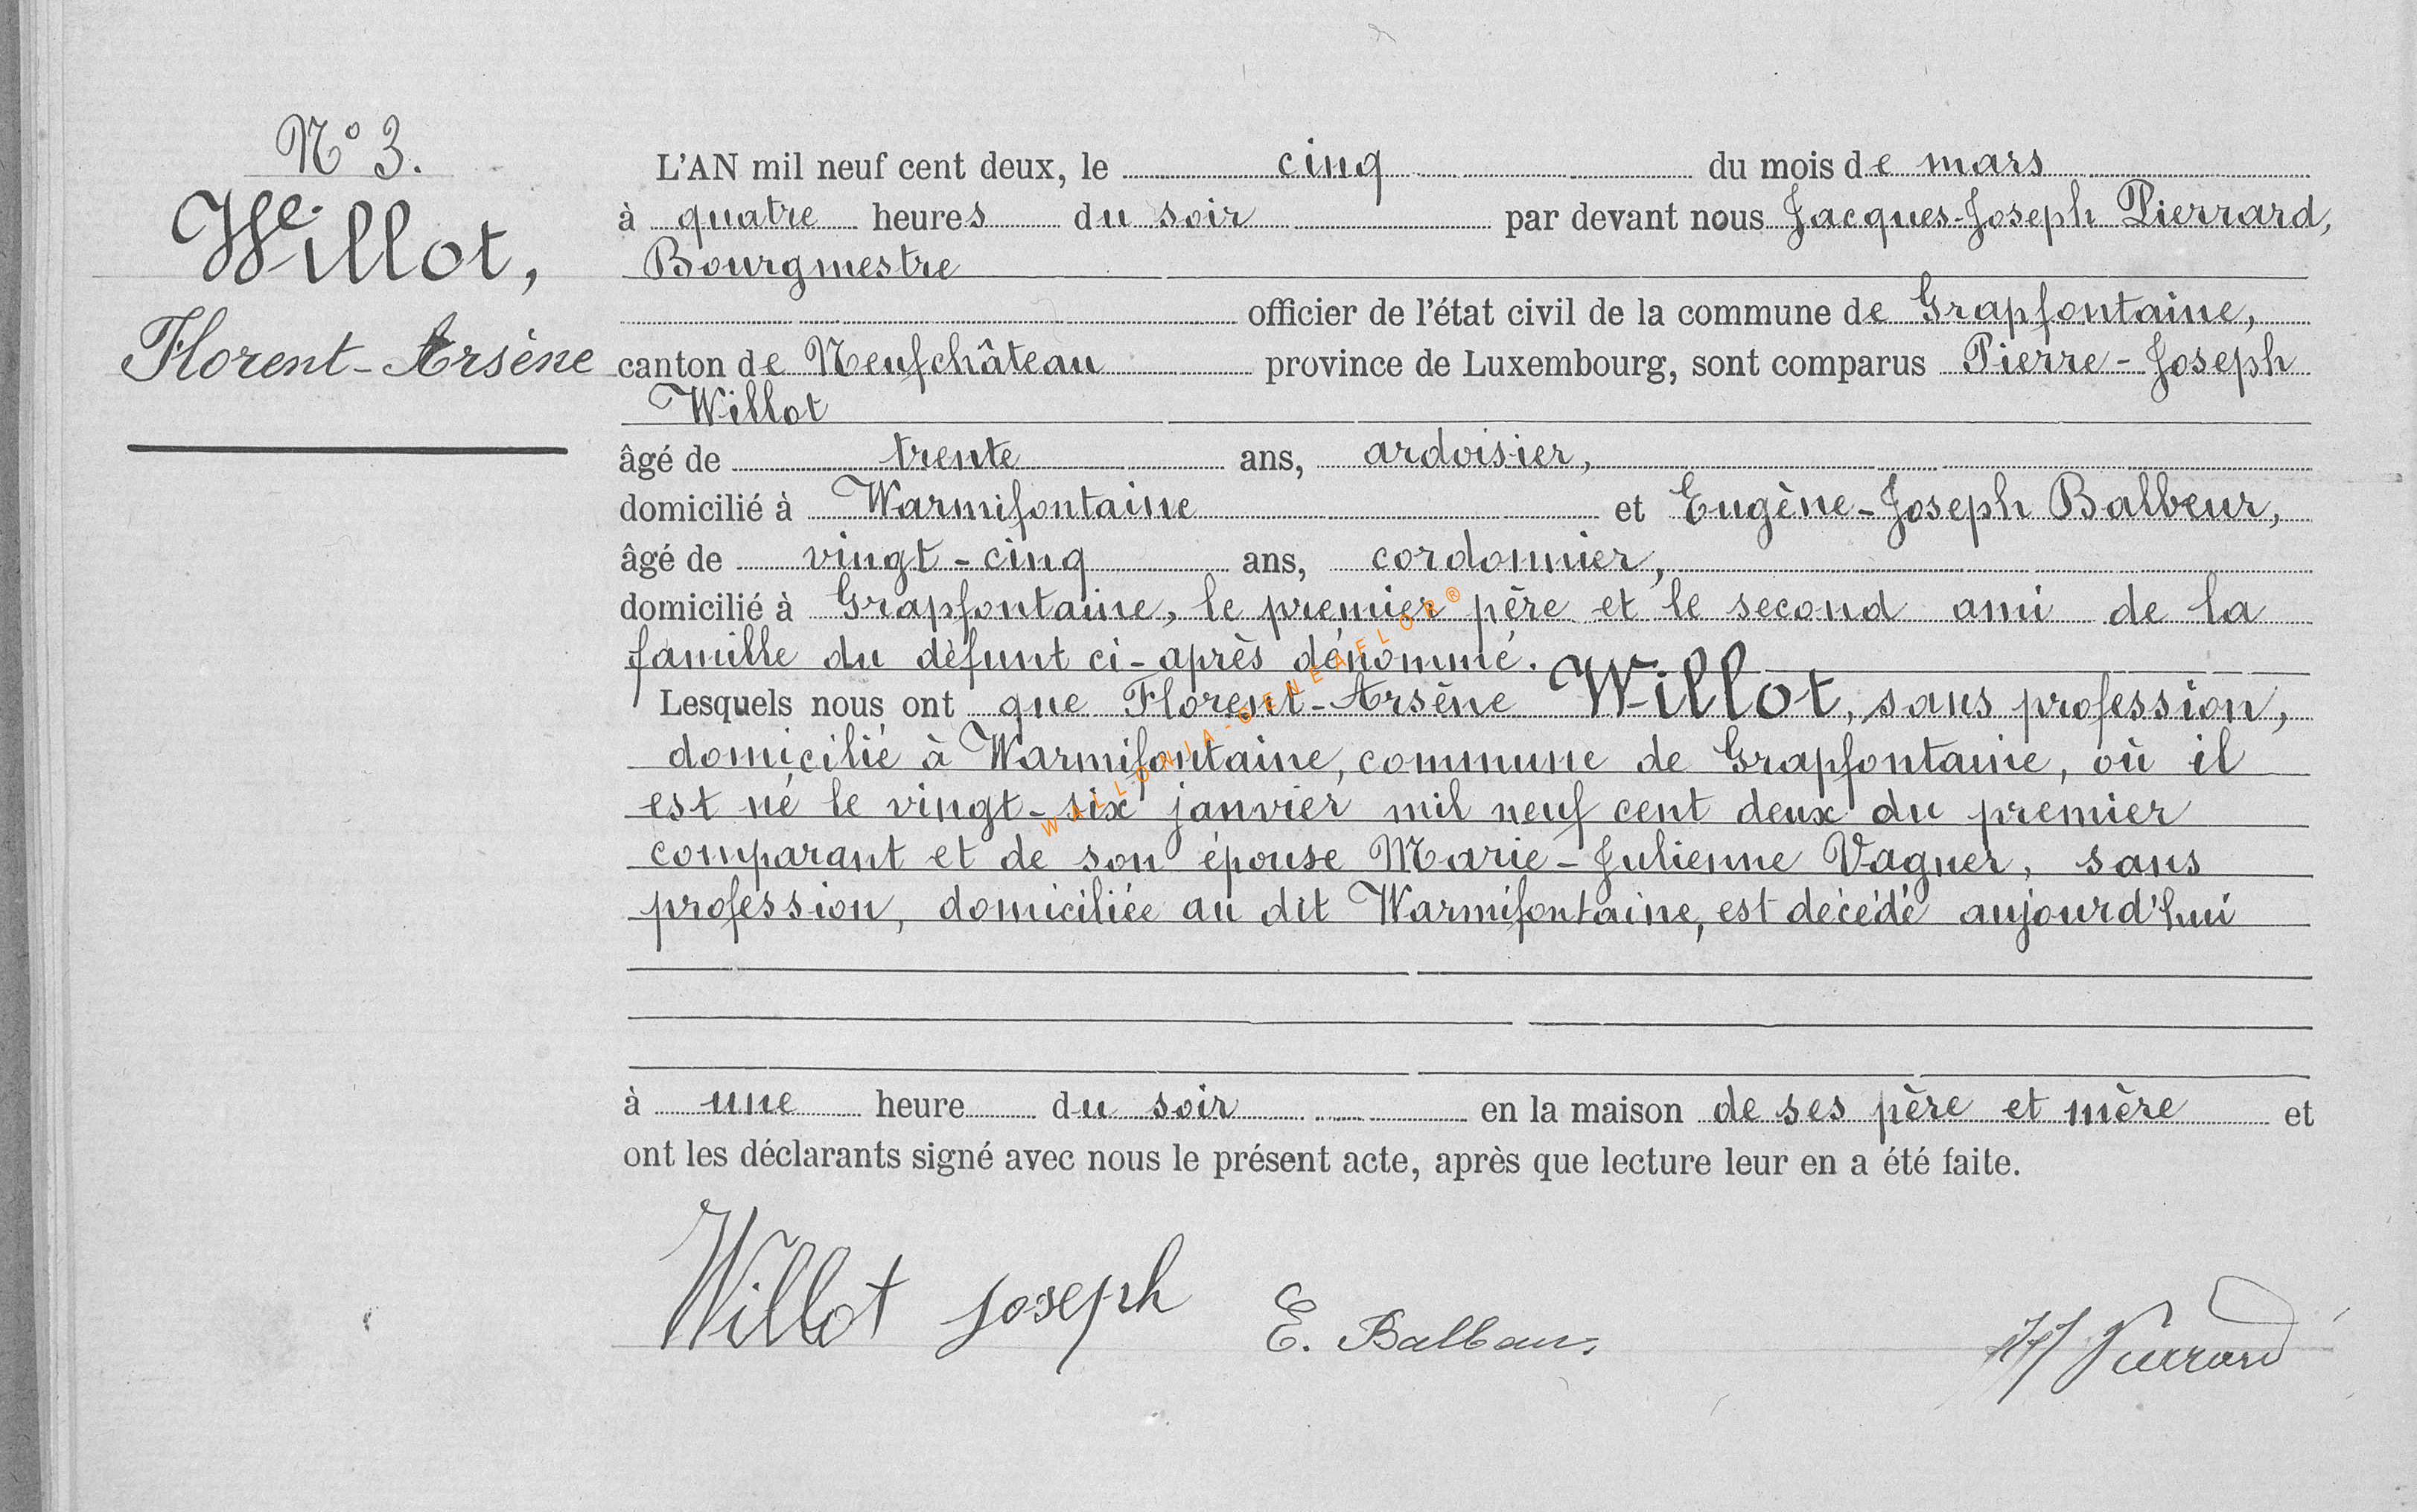 N° 3.
Willot,
Florent-Arsène
L'AN mil neuf cent deux, le cinq du mois de mars
à quatre heures du soir par devant nous Jacques-Joseph Pierrard,
Bourgmestre
officier de l'état civil de la commune de Grapfontaine,
canton de Neufchâteau province de Luxembourg, sont comparus Pierre-Joseph
Willot
âgé de trente ans, ardoisier,
domicilié à Warmifontaine et Eugène-Joseph Balbeur,
âgé de vingt-cinq ans, cordonnier,
domicilié à Grapfontaine, le premier père et le second ami de la
famille du défunt ci-après dénommé.
Lesquels nous ont que Florent-Arsène Willot, sans profession,
domicilié à Warmifontaine, commune de Grapfontaine, où il
est né le vingt-six janvier mil neuf cent deux du premier
comparant et de son épouse Marie-Julienne Vagner, sans
profession, domiciliée au dit Warmifontaine, est décédé aujourd'hui
à une heure du soir en la maison de ses père et mère et
ont les déclarants signé avec nous le présent acte, après que lecture leur en a été faite.
Willot Joseph E. Balbeur. JJ Pierrard
WALLONIA-GENEAFLOR®